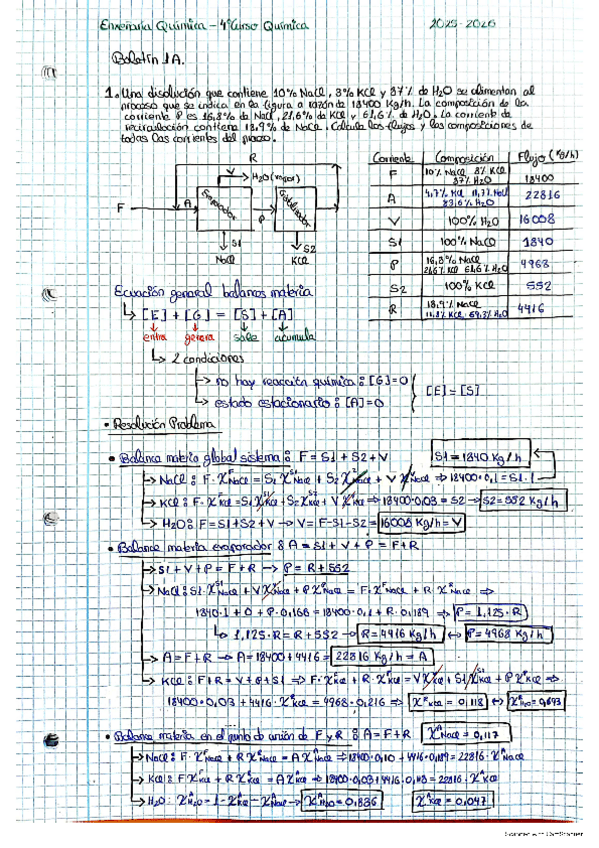 Enxeñaría Química - 4º Curso Química 2025-2026
Boletín 1A.
1. Una disolución que contiene 10% NaCl, 3% KCl y 87% de H2O se alimentan al
proceso que se indica en la figura a razón de 18400 Kg/h. La composición de la
corriente P es 16,8% de NaCl, 21,6% de KCl y 61,6% de H2O. La corriente de
recirculación contiene 18,9% de NaCl. Calcula los flujos y las composiciones de
todas las corrientes del proceso.
R
V → H2O (vapor)
F A Evaporador P Cristalizador
S1 S2
NaCl KCl
Corriente Composición Flujo (Kg/h)
F 10% NaCl 3% KCl 87% H2O 18400
A 4,7% KCl 11,7% NaCl 83,6% H2O 22816
V 100% H2O 16008
S1 100% NaCl 1840
P 16,8% NaCl 21,6% KCl 61,6% H2O 4968
S2 100% KCl 552
R 18,9% NaCl 11,8% KCl 69,3% H2O 4416
Ecuación general balances materia
↳ [E] + [G] = [S] + [A]
entra genera sale acumula
↳ 2 condiciones
→ no hay reacción química: [G]=0
→ estado estacionario: [A]=0
[E] = [S]
• Resolución Problema
• Balance materia global sistema: F = S1 + S2 + V S1 = 1840 Kg/h
→ NaCl: F·X^F NaCl = S1 X^S1 NaCl + S2 X^S2 NaCl + V X^V NaCl ⇒ 18400·0,1 = S1·1
→ KCl: F·X^F KCl = S1 X^S1 KCl + S2 X^S2 KCl + V X^V KCl ⇒ 18400·0,03 = S2 → S2 = 552 Kg/h
→ H2O: F = S1 + S2 + V → V = F-S1-S2 = 16008 Kg/h = V
• Balance materia evaporador: A = S1 + V + P = F+R
→ S1 + V + P = F + R → P = R + 552
→ NaCl: S1·X^S1 NaCl + V X^V NaCl + P X^P NaCl = F·X^F NaCl + R·X^R NaCl ⇒
1840·1 + 0 + P·0,168 = 18400·0,1 + R·0,189 ⇒ P = 1,125·R
↳ 1,125·R = R + 552 → R = 4416 Kg/h ↔ P = 4968 Kg/h
→ A = F+R → A = 18400 + 4416 = 22816 Kg/h = A
→ KCl: F+R = V+P+S1 ⇒ F·X^F KCl + R·X^R KCl = V X^V KCl + S1 X^S1 KCl + P X^P KCl ⇒
18400·0,03 + 4416·X^R KCl = 4968·0,216 ⇒ X^R KCl = 0,118 ↔ X^R H2O = 0,693
• Balance materia en el punto de unión de F y R: A = F+R X^A NaCl = 0,117
→ NaCl: F·X^F NaCl + R X^R NaCl = A X^A NaCl ⇒ 18400·0,10 + 4416·0,189 = 22816·X^A NaCl
→ KCl: F X^F KCl + R X^R KCl = A X^A KCl ⇒ 18400·0,03 + 4416·0,118 = 22816·X^A KCl
→ H2O: X^A H2O = 1 - X^A KCl - X^A NaCl → X^A H2O = 0,836 X^A KCl = 0,047